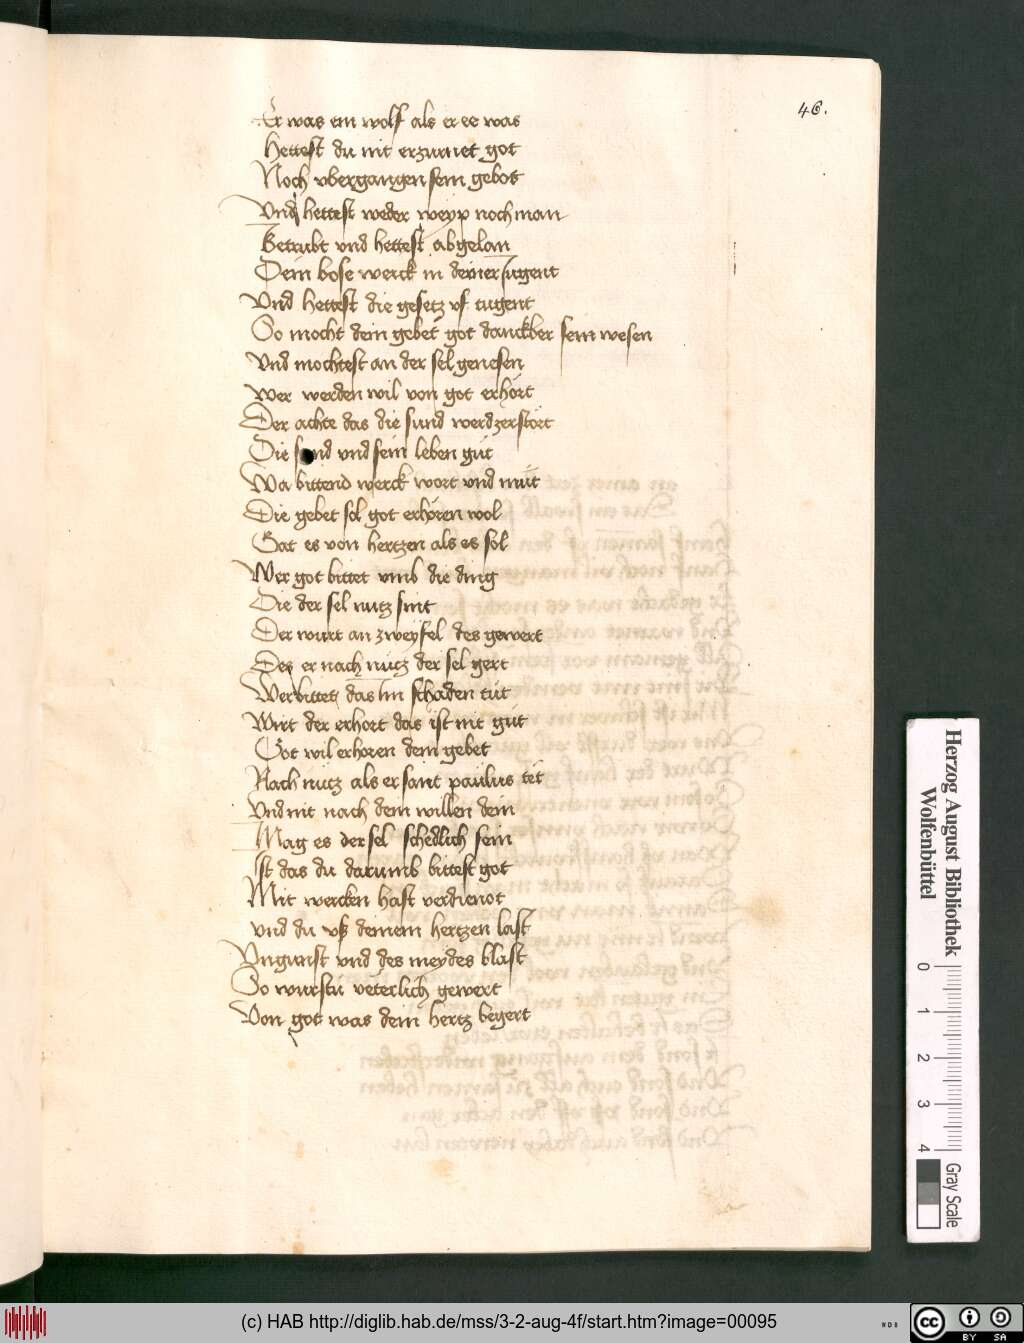 46.
Er was ein wolf als er ee was
Hettest du nit erzurnet got
Noch vbergangen sein gebot
Vnd hettest weder weyp noch man
Betrubt vnd hettest abgelan
Dein bose werck in deiner jugent
Vnd hettest die gesetz vf tugent
So mocht dein gebet got danckber sein wesen
Vnd mochtest an der sel genesen
Wer werden wil von got erhort
Der achte das die sund werd zerstort
Die sind vnd sein leben gůt
Wa bittend werck wort vnd můt
Die gebet sol got erhoren wol
Gat es von hertzen als es sol
Wer got bittet vmb die ding
Die der sel nutz sint
Der wirt an zweyfel des gewert
Des er nach nutz der sel gert
Wer bittet das im schaden tůt
Wirt der erhort das ist nit gůt
Got wil erhoren dein gebet
Nach nutz als er sant paulus tet
Vnd nit nach dem willen dein
Mag es der sel schedlich sein
Ist das du darumb bittest got
Mit wercken hast verdienot
vnd du vß deinem hertzen last
Vngunst vnd des neydes blast
So wurstu veterlich gewert
Von got was dein hertz begert
Herzog August Bibliothek
Wolfenbüttel
0 1 2 3 4
Gray Scale
(c) HAB http://diglib.hab.de/mss/3-2-aug-4f/start.htm?image=00095
cc BY SA